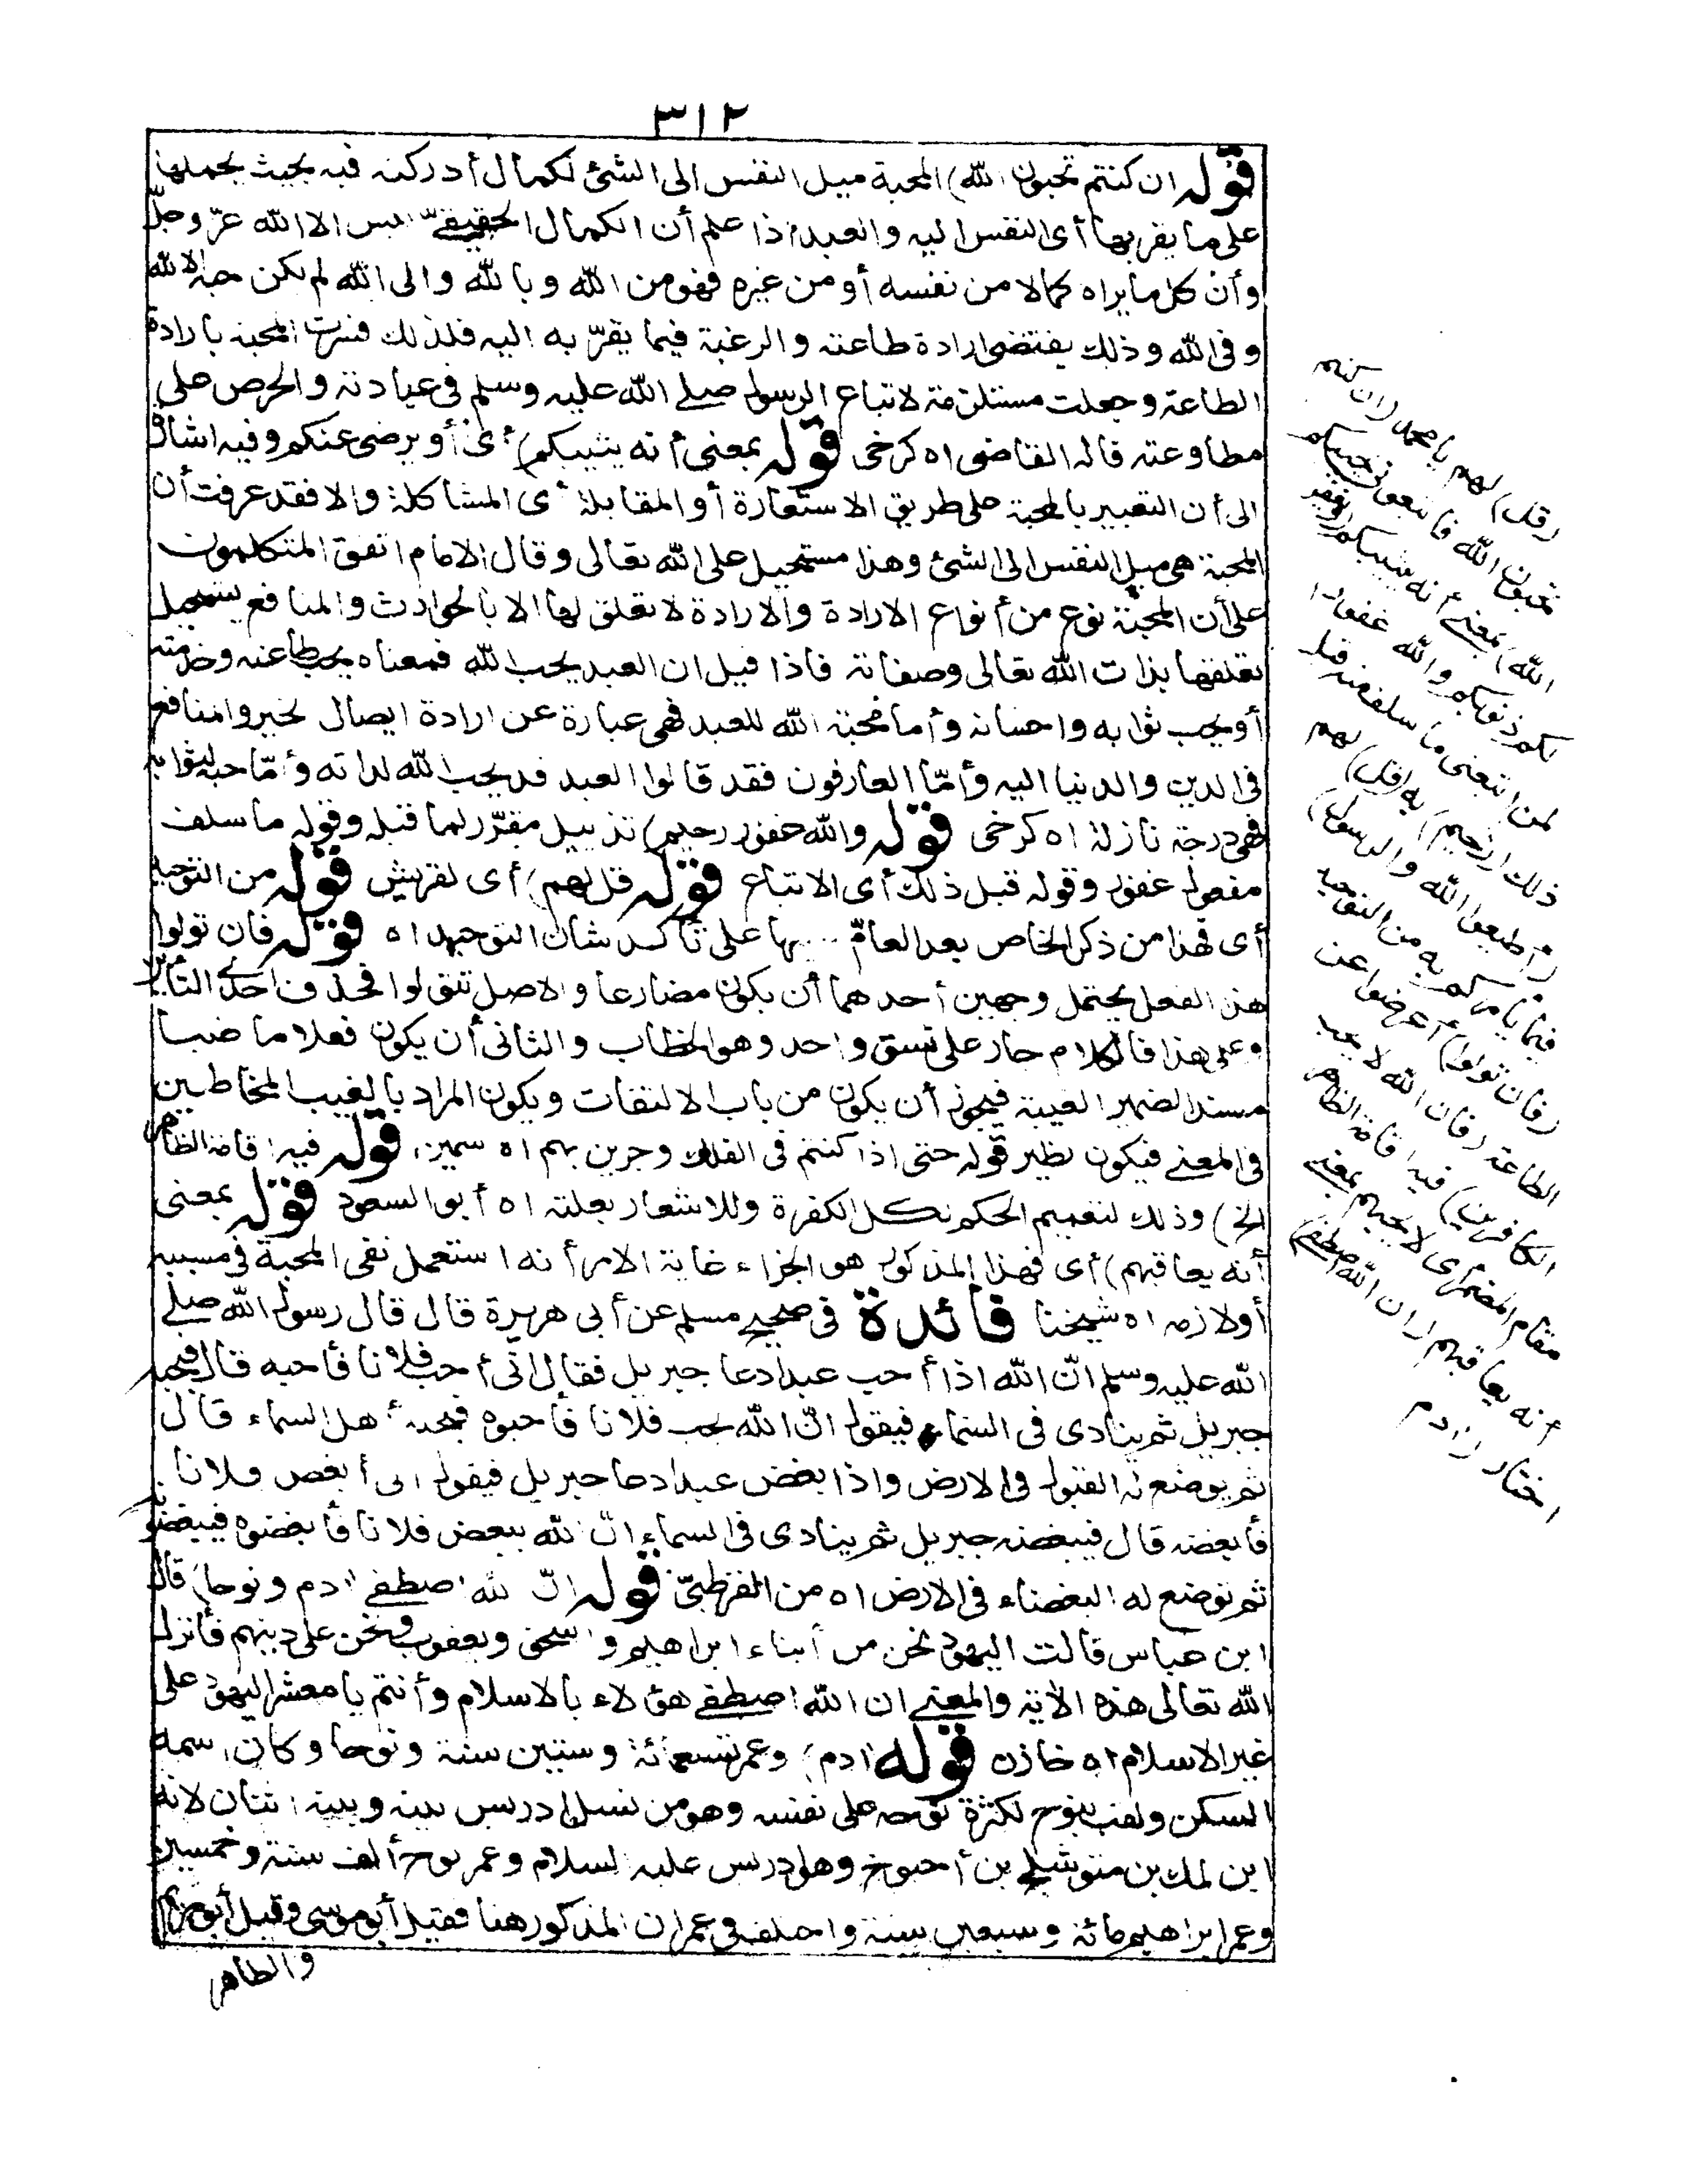 ٣١٢
قوله ان كنتم تحبون الله) المحبة ميل النفس الى الشئ لكمال أدركته فيه بحيث يحملها
على ما يقربها أى النفس اليه والعبد اذا علم أن الكمال الحقيقىّ ليس الا الله عزّ وجلّ
وأن كل ما يراه كمالا من نفسه أو من غيره فهو من الله وبالله والى الله لم يكن حبه الا لله
وفى الله وذلك يقتضى ارادة طاعته والرغبة فيما يقرّبه اليه فلذلك فسرت المحبة بارادة
الطاعة وجعلت مستلزمة لاتباع الرسول صلى الله عليه وسلم فى عبادته والحرص على
مطاوعته قاله القاضى اه كرخى قوله بمعنى أنه يثيبكم) أى أو يرضى عنكم وفيه اشارة
الى أن التعبير بالمحبة على طريق الاستعارة أو المقابلة أى المشاكلة والا فقد عرفت أن
المحبة هى ميل النفس الى الشئ وهذا مستحيل على الله تعالى وقال الامام اتفق المتكلمون
على أن المحبة نوع من أنواع الارادة والارادة لا تعلق لها الا بالحوادث والمنافع يستحيل
تعلقها بذات الله تعالى وصفاته فاذا قيل ان العبد يحب الله فمعناه يحب طاعته وخدمته
أو يحب ثوابه واحسانه وأما محبة الله للعبد فهى عبارة عن ارادة ايصال الخير والمنافع
فى الدين والدنيا اليه وأمّا العارفون فقد قالوا العبد قد يحب الله لذاته وأمّا حبه لثوابه
فهى درجة نازلة اه كرخى قوله والله غفور رحيم) تذييل مقرّر لما قبله وقوله ما سلف
مفعول غفور وقوله قبل ذلك أى الاتباع قوله قل لهم) أى لقريش قوله من التوحيد
أى فهذا من ذكر الخاص بعد العامّ على تأكد شان التوحيد اه قوله فان تولوا
هذا الفعل يحتمل وجهين أحدهما أن يكون مضارعا والاصل تتولوا فحذف احدى التاءين
وعلى هذا فالكلام جار على نسق واحد وهو الخطاب والثانى أن يكون فعلا ماضيا
مسندا لضمير الغيبة فيجوز أن يكون من باب الالتفات ويكون المراد بالغيب المخاطبين
فى المعنى فيكون نظير قوله حتى اذا كنتم فى الفلك وجرين بهم اه سمين قوله فيه اقامة الظاهر
الخ) وذلك لتعميم الحكم لكل الكفرة وللاشعار بعلته اه أبو السعود قوله بمعنى
أنه يعاقبهم) أى فهذا المذكور هو الجزاء غاية الامر أنه استعمل نفى المحبة فى مسببه
أو لازمه اه شيخنا فائدة فى صحيح مسلم عن أبى هريرة قال قال رسول الله صلى
الله عليه وسلم انّ الله اذا أحب عبدا دعا جبريل فقال انّى أحب فلانا فأحبه قال فيحبه
جبريل ثم ينادى فى السماء فيقول انّ الله يحب فلانا فأحبوه فيحبه أهل السماء قال
ثم يوضع له القبول فى الارض واذا بغض عبدا دعا جبريل فيقول انى أبغض فلانا
فأبغضه قال فيبغضه جبريل ثم ينادى فى السماء انّ الله يبغض فلانا فأبغضوه فيبغضونه
ثم توضع له البغضاء فى الارض اه من القرطبىّ قوله انّ الله اصطفى ادم ونوحا) قال
ابن عباس قالت اليهود نحن من أبناء ابراهيم واسحق ويعقوب ونحن على دينهم فأنزل
الله تعالى هذه الآية والمعنى ان الله اصطفى هؤلاء بالاسلام وأنتم يا معشر اليهود على
غير الاسلام اه خازن قوله ادم) وعمر تسعمائة وستين سنة ونوحا وكان اسمه
السكن ولقب بنوح لكثرة نوحه على نفسه وهو من نسل ادريس بينه وبينه اثنان لانه
ابن لمك بن متوشلخ بن أخنوخ وهو ادريس عليه السلام وعمر نوح ألف سنة وخمسين
وعمر ابراهيم مائة وسبعين سنة واختلف فى عمران المذكور هنا فقيل أبو موسى وقيل أبو مريم
والظاهر
(قل) لهم يا محمد (ان كنتم
تحبون الله فاتبعونى يحببكم
الله) بمعنى أنه يثيبكم (ويغفر
لكم ذنوبكم والله غفور)
لمن اتبعنى ما سلف منه قبل
ذلك (رحيم) به (قل) لهم
(أطيعوا الله والرسول)
فيما يأمركم به من التوحيد
(فان تولوا) أعرضوا عن
الطاعة (فان الله لا يحب
الكافرين) فيه اقامة الظاهر
مقام المضمر أى لا يحبهم بمعنى
أنه يعاقبهم (ان الله اصطفى)
اختار (ادم